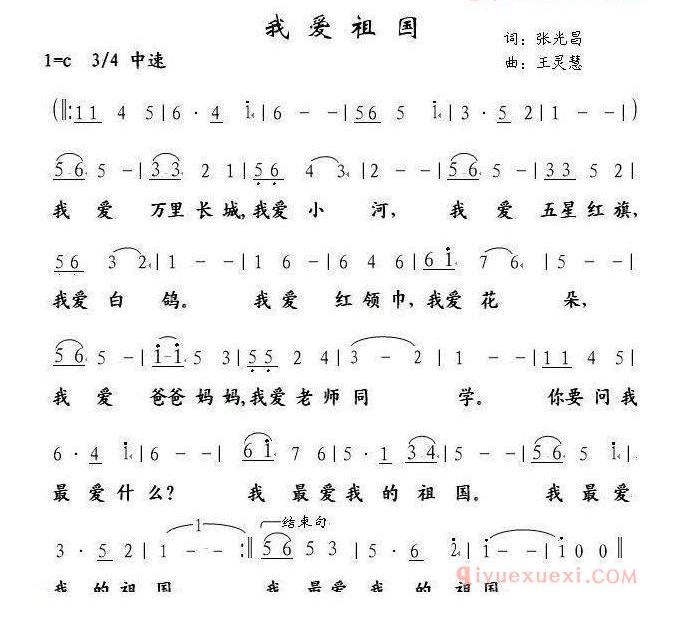 我 爱 祖 国
词：张光昌
1=c 3/4 中速
曲：王灵慧
(‖: 11 4 5 | 6 · 4 i | 6 - - | 56 5 i | 3 · 5 2 | 1 - - | )
5 6 5 - | 3 3 2 1 | 56 4 3 | 2 - - | 56 5 - | 33 5 2 |
我 爱 万里长城,我爱小 河， 我 爱 五星红旗，
56 3 2 | 1 - - | 1 6 - | 6 4 6 | 6 i 7 6 | 5 - - |
我爱白 鸽。 我 爱 红领巾,我爱花 朵，
5 6 5 - | i-i 5 3 | 55 2 4 | 3 - 2 | 1 - - | 11 4 5 |
我 爱 爸爸妈妈,我爱老师同 学。 你要问我
6 · 4 i | 6 - - | 6 i 7 6 | 5 · 1 34 | 5 - - | 56 5 i |
最爱什么？ 我 最爱我的祖国。 我最爱
1 结束句
3 · 5 2 | 1 - - :‖ 56 5 3 | 5 · 6 2 | i - - | i 0 0 ‖
qiyuexuexi.com
我 的祖 国 我 最爱我 的 祖国